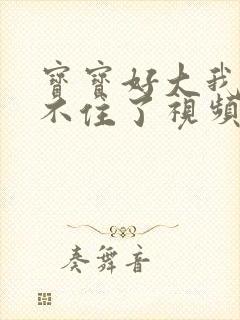 寶寶好大我
不住了視頻
奏舞音